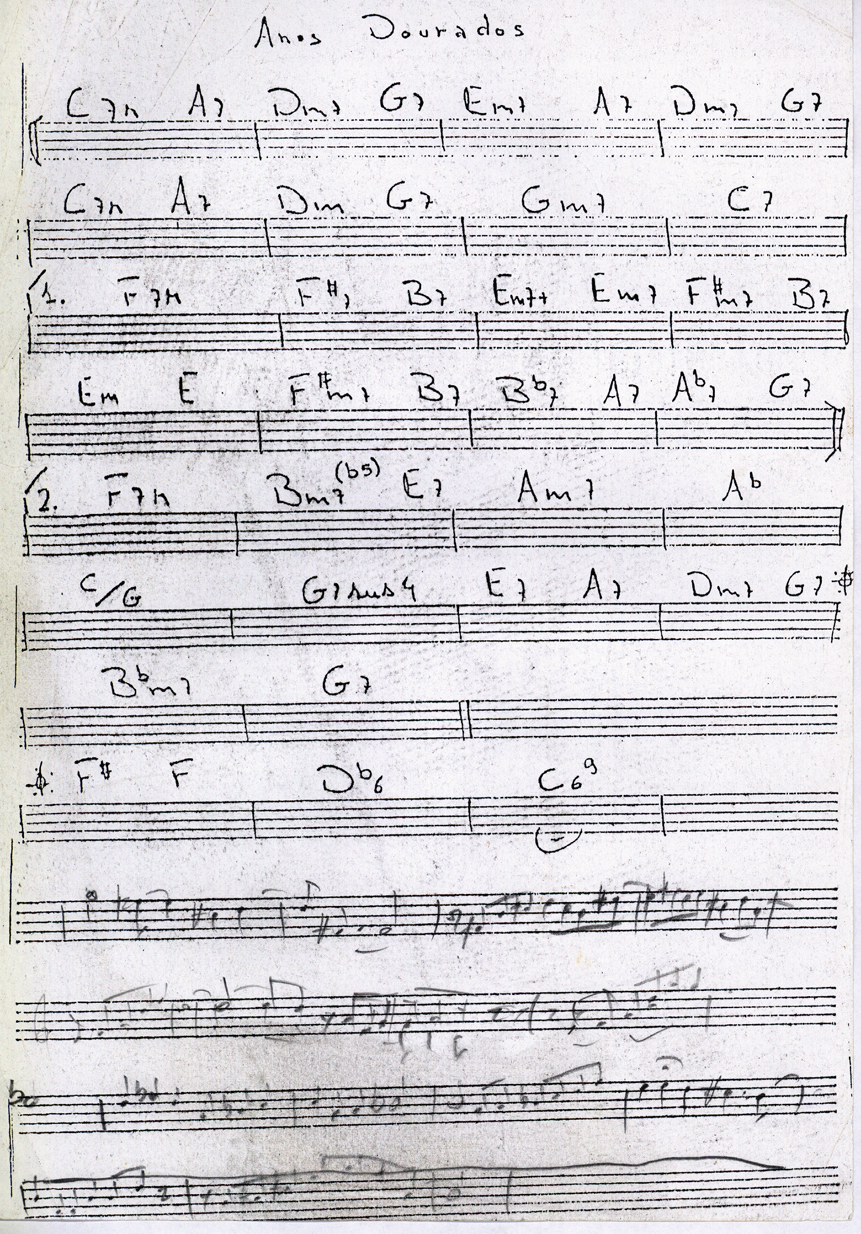 Anos Dourados
C7M A7 Dm7 G7 Em7 A7 Dm7 G7
C7M A7 Dm G7 Gm7 C7
1. F7M F#7 B7 Em7+ Em7 F#m7 B7
Em E F#m7 B7 Bb7 A7 Ab7 G7
2. F7M Bm7(b5) E7 Am7 Ab
C/G G7sus4 E7 A7 Dm7 G7
Bbm7 G7
F# F Db6 C6 9